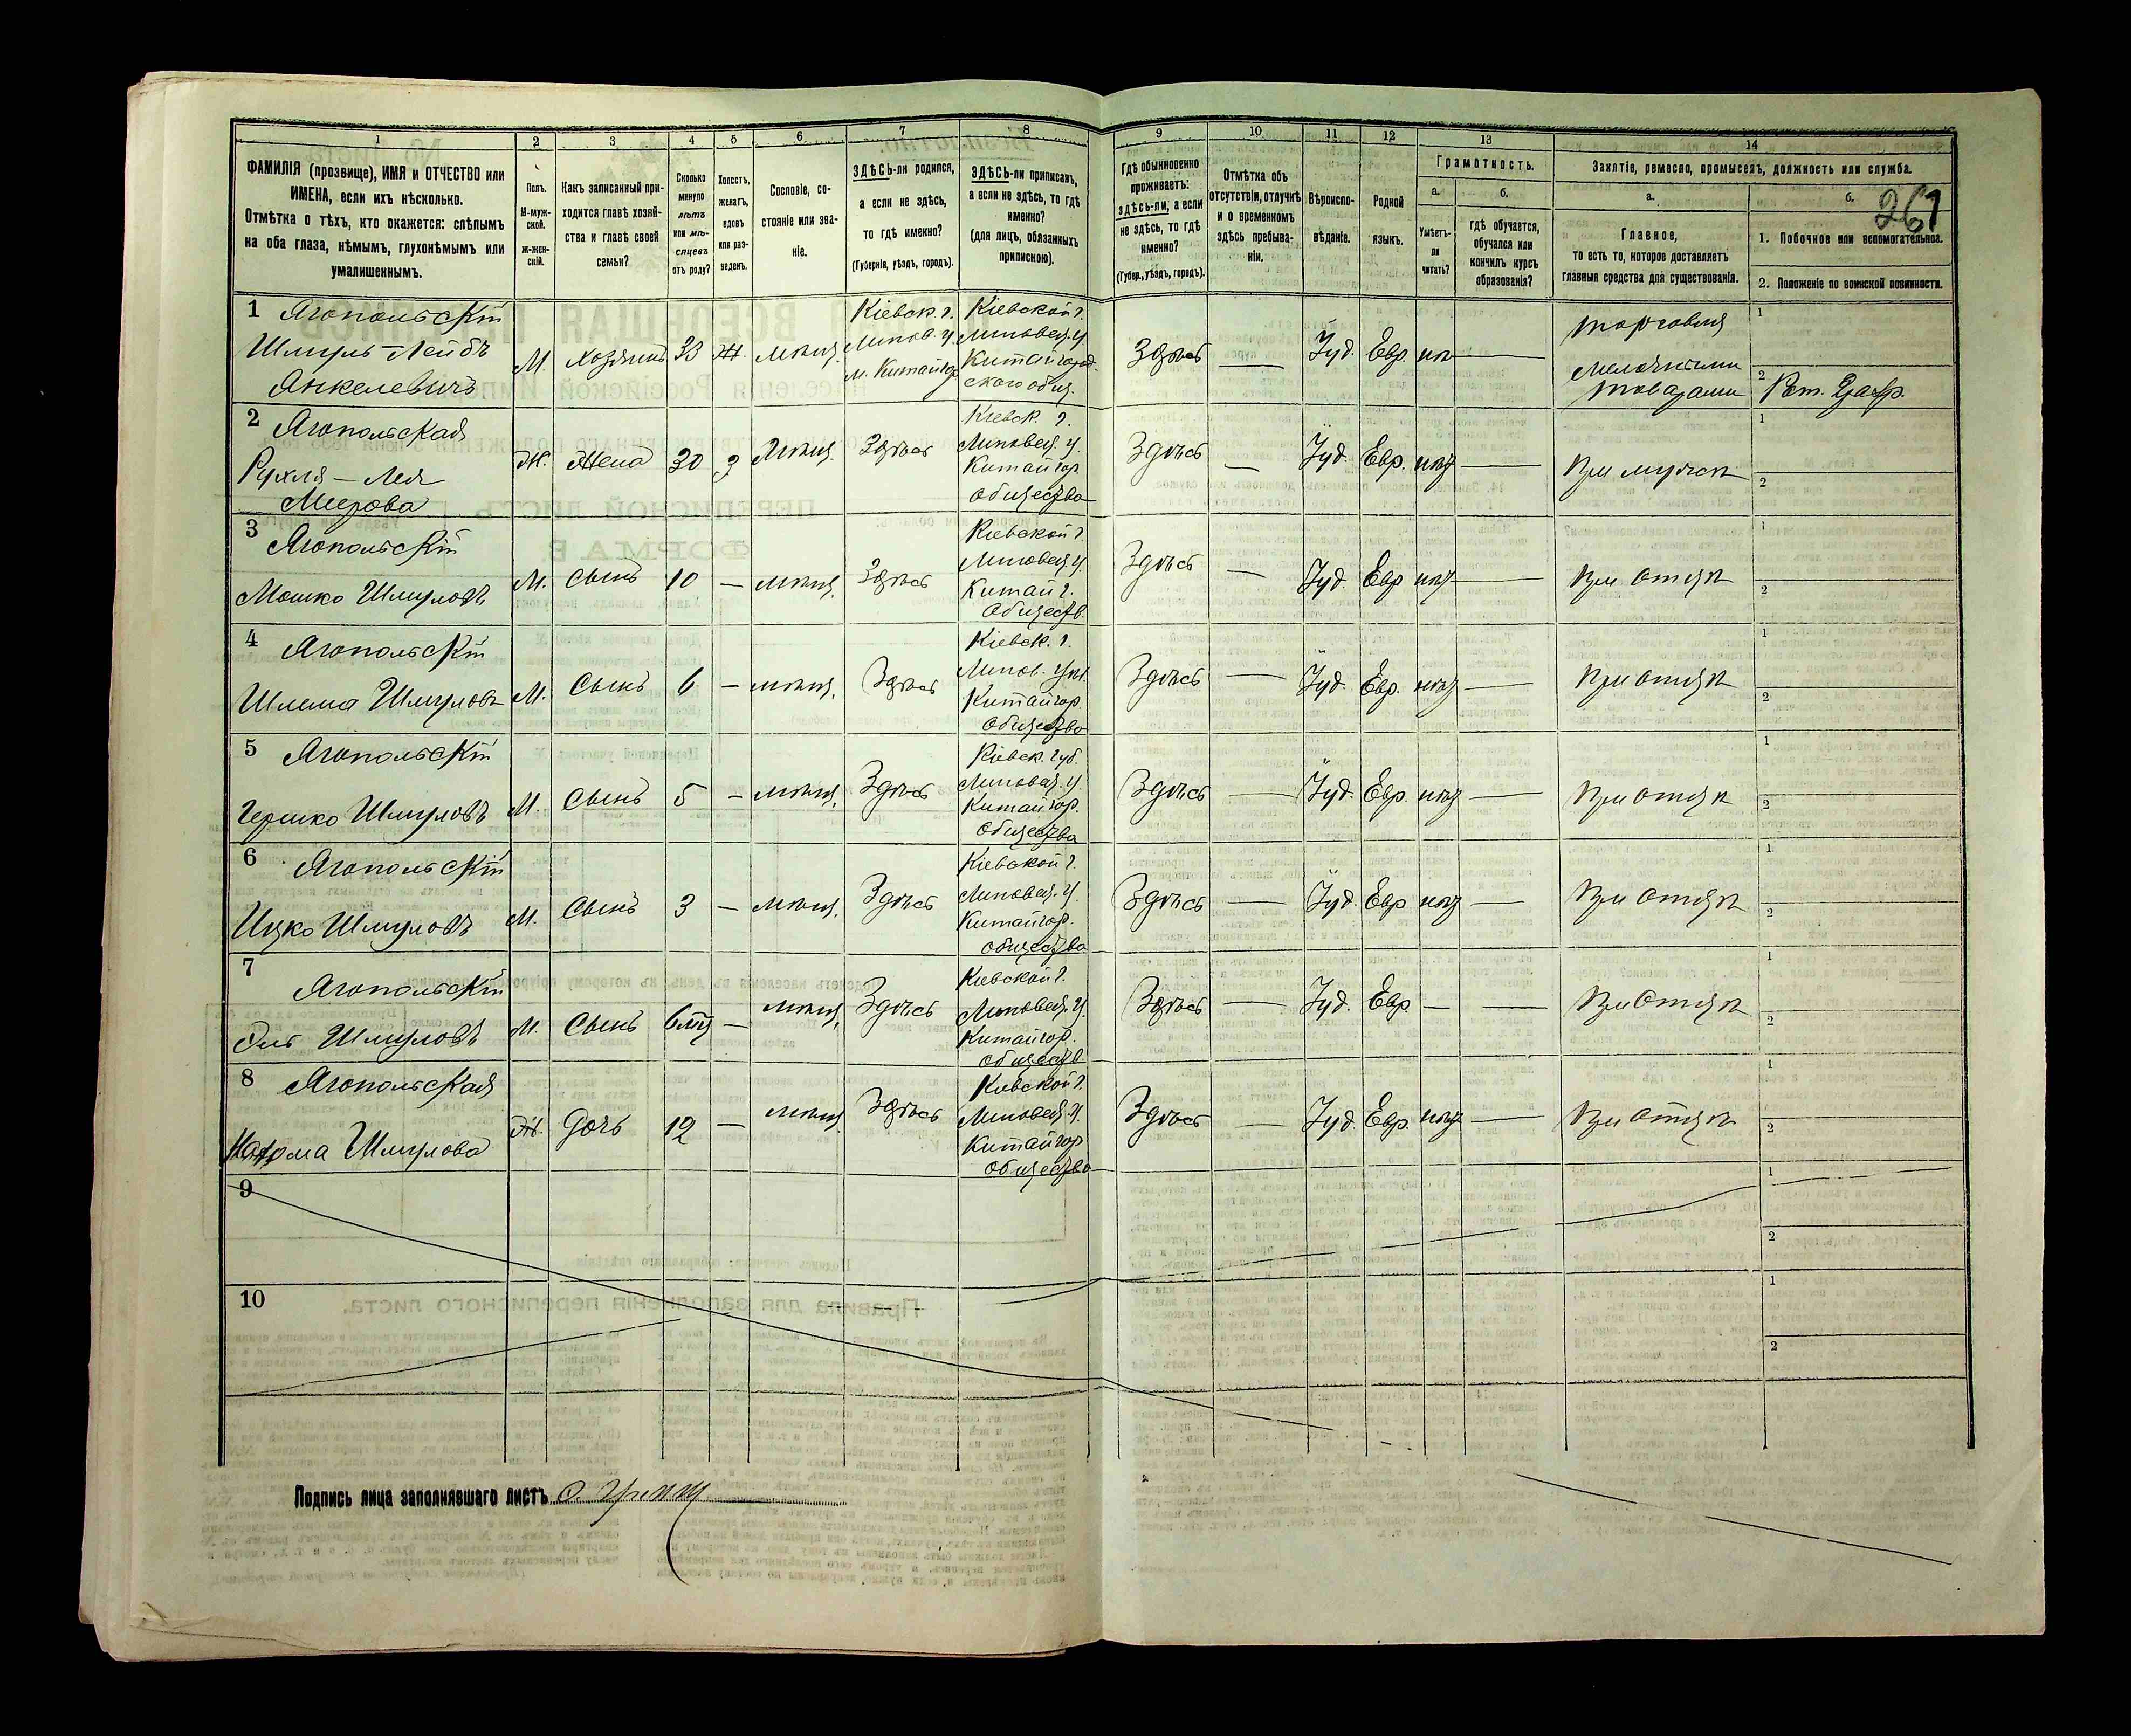 1
2
3
4
5
6
7
8
9
10
11
12
13
14
ФАМИЛІЯ (прозвище), ИМЯ и ОТЧЕСТВО или
ИМЕНА, если ихъ нѣсколько.
Отмѣтка о тѣхъ, кто окажется: слѣпымъ
на оба глаза, нѣмымъ, глухонѣмымъ или
умалишеннымъ.
Полъ.
М-муж-
ской.
Ж-жен-
скій.
Какъ записанный при-
ходится главѣ хозяй-
ства и главѣ своей
семьи?
Сколько
минуло
лѣтъ
или мѣ-
сяцевъ
отъ роду?
Холостъ,
женатъ,
вдовъ
или раз-
веденъ.
Сословіе, со-
стояніе или зва-
ніе.
ЗДѢСЬ-ли родился,
а если не здѣсь,
то гдѣ именно?
(Губернія, уѣздъ, городъ).
ЗДѢСЬ-ли приписанъ,
а если не здѣсь, то гдѣ
именно?
(для лицъ, обязанныхъ
припискою).
Гдѣ обыкновенно
проживаетъ:
здѣсь-ли, а если
не здѣсь, то гдѣ
именно?
(Губер., уѣздъ, городъ).
Отмѣтка объ
отсутствіи, отлучкѣ
и о временномъ
здѣсь пребыва-
ніи.
Вѣроиспо-
вѣданіе.
Родной
языкъ.
Грамотность.
а.
Умѣетъ-
ли
читать?
б.
гдѣ обучается,
обучался или
кончилъ курсъ
образованія?
Занятіе, ремесло, промыселъ, должность или служба.
а.
Главное,
то есть то, которое доставляетъ
главныя средства для существованія.
б.
261
1. Побочное или вспомогательное.
2. Положеніе по воинской повинности.
1 Ягопольскій
Шмуль-Лейбъ
Янкелевичъ
М. Хозяинъ 33 Ж. мѣщ.
Кіевск. г.
Липов. у.
м. Китайгор.
Кіевской г.
Липовец. у.
Китайгород-
скаго общ.
Здѣсь — Іуд. Евр. —
торговля
мелочными
товарами
1
2
2 Ягопольская
Рухля-Лея
Меерова
Ж. Жена 30 З мѣщ. Здѣсь
Кіевск. г.
Липовец. у.
Китайгор.
общества
Здѣсь — Іуд. Евр. нѣт —
При мужѣ
1
2
3 Ягопольскій
Мошко Шмуловъ
М. Сынъ 10 — мѣщ. Здѣсь
Кіевской г.
Липовец. у.
Китай г.
обществ.
Здѣсь — Іуд. Евр нѣт —
При отцѣ
1
2
4 Ягопольскій
Шлема Шмуловъ
М. Сынъ 6 — мѣщ. Здѣсь
Кіевск. г.
Липов. уѣз.
Китайгор.
общество
Здѣсь — Іуд. Евр. нѣт —
При отцѣ
1
2
5 Ягопольскій
Гершко Шмуловъ
М. Сынъ 5 — мѣщ. Здѣсь
Кіевск. губ.
Липовец. у.
Китайгор.
общества
Здѣсь — Іуд. Евр. нѣт —
При отцѣ
1
2
6 Ягопольскій
Ицко Шмуловъ
М. Сынъ 3 — мѣщ. Здѣсь
Кіевской г.
Липовец. у.
Китайгор.
общество
Здѣсь — Іуд. Евр нѣт —
При отцѣ
1
2
7 Ягопольскій
Шмуловъ
М. Сынъ 6 — мѣщ. Здѣсь
Кіевской г.
Липовец. у.
Китайгор.
обществ.
Здѣсь — Іуд. Евр. — —
При отцѣ
1
2
8 Ягопольская
Шмулова
Ж. Дочь 12 — мѣщ. Здѣсь
Кіевской г.
Липовец. у.
Китайгор
общество
Здѣсь — Іуд. Евр. нѣт —
При отцѣ
1
2
9
1
2
10
1
2
Подпись лица заполнявшаго листъ